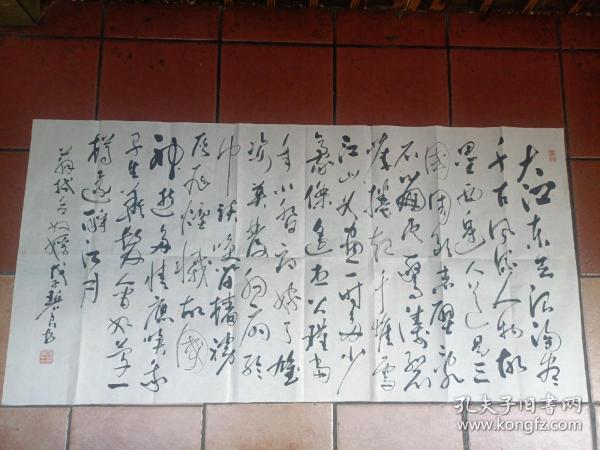 大江东去浪淘尽
千古风流人物故
垒西边人道是三
国周郎赤壁乱
石崩云惊涛裂
岸捲起千堆雪
江山如画一时多少
豪杰遥想公瑾当
年小乔初嫁了雄
姿英发羽扇纶
巾谈笑间樯橹
灰飞烟灭故国
神游多情应笑我
早生华发人生如梦一
樽还酹江月
苏轼念奴娇
孔夫子旧书网
www.kongfz.com